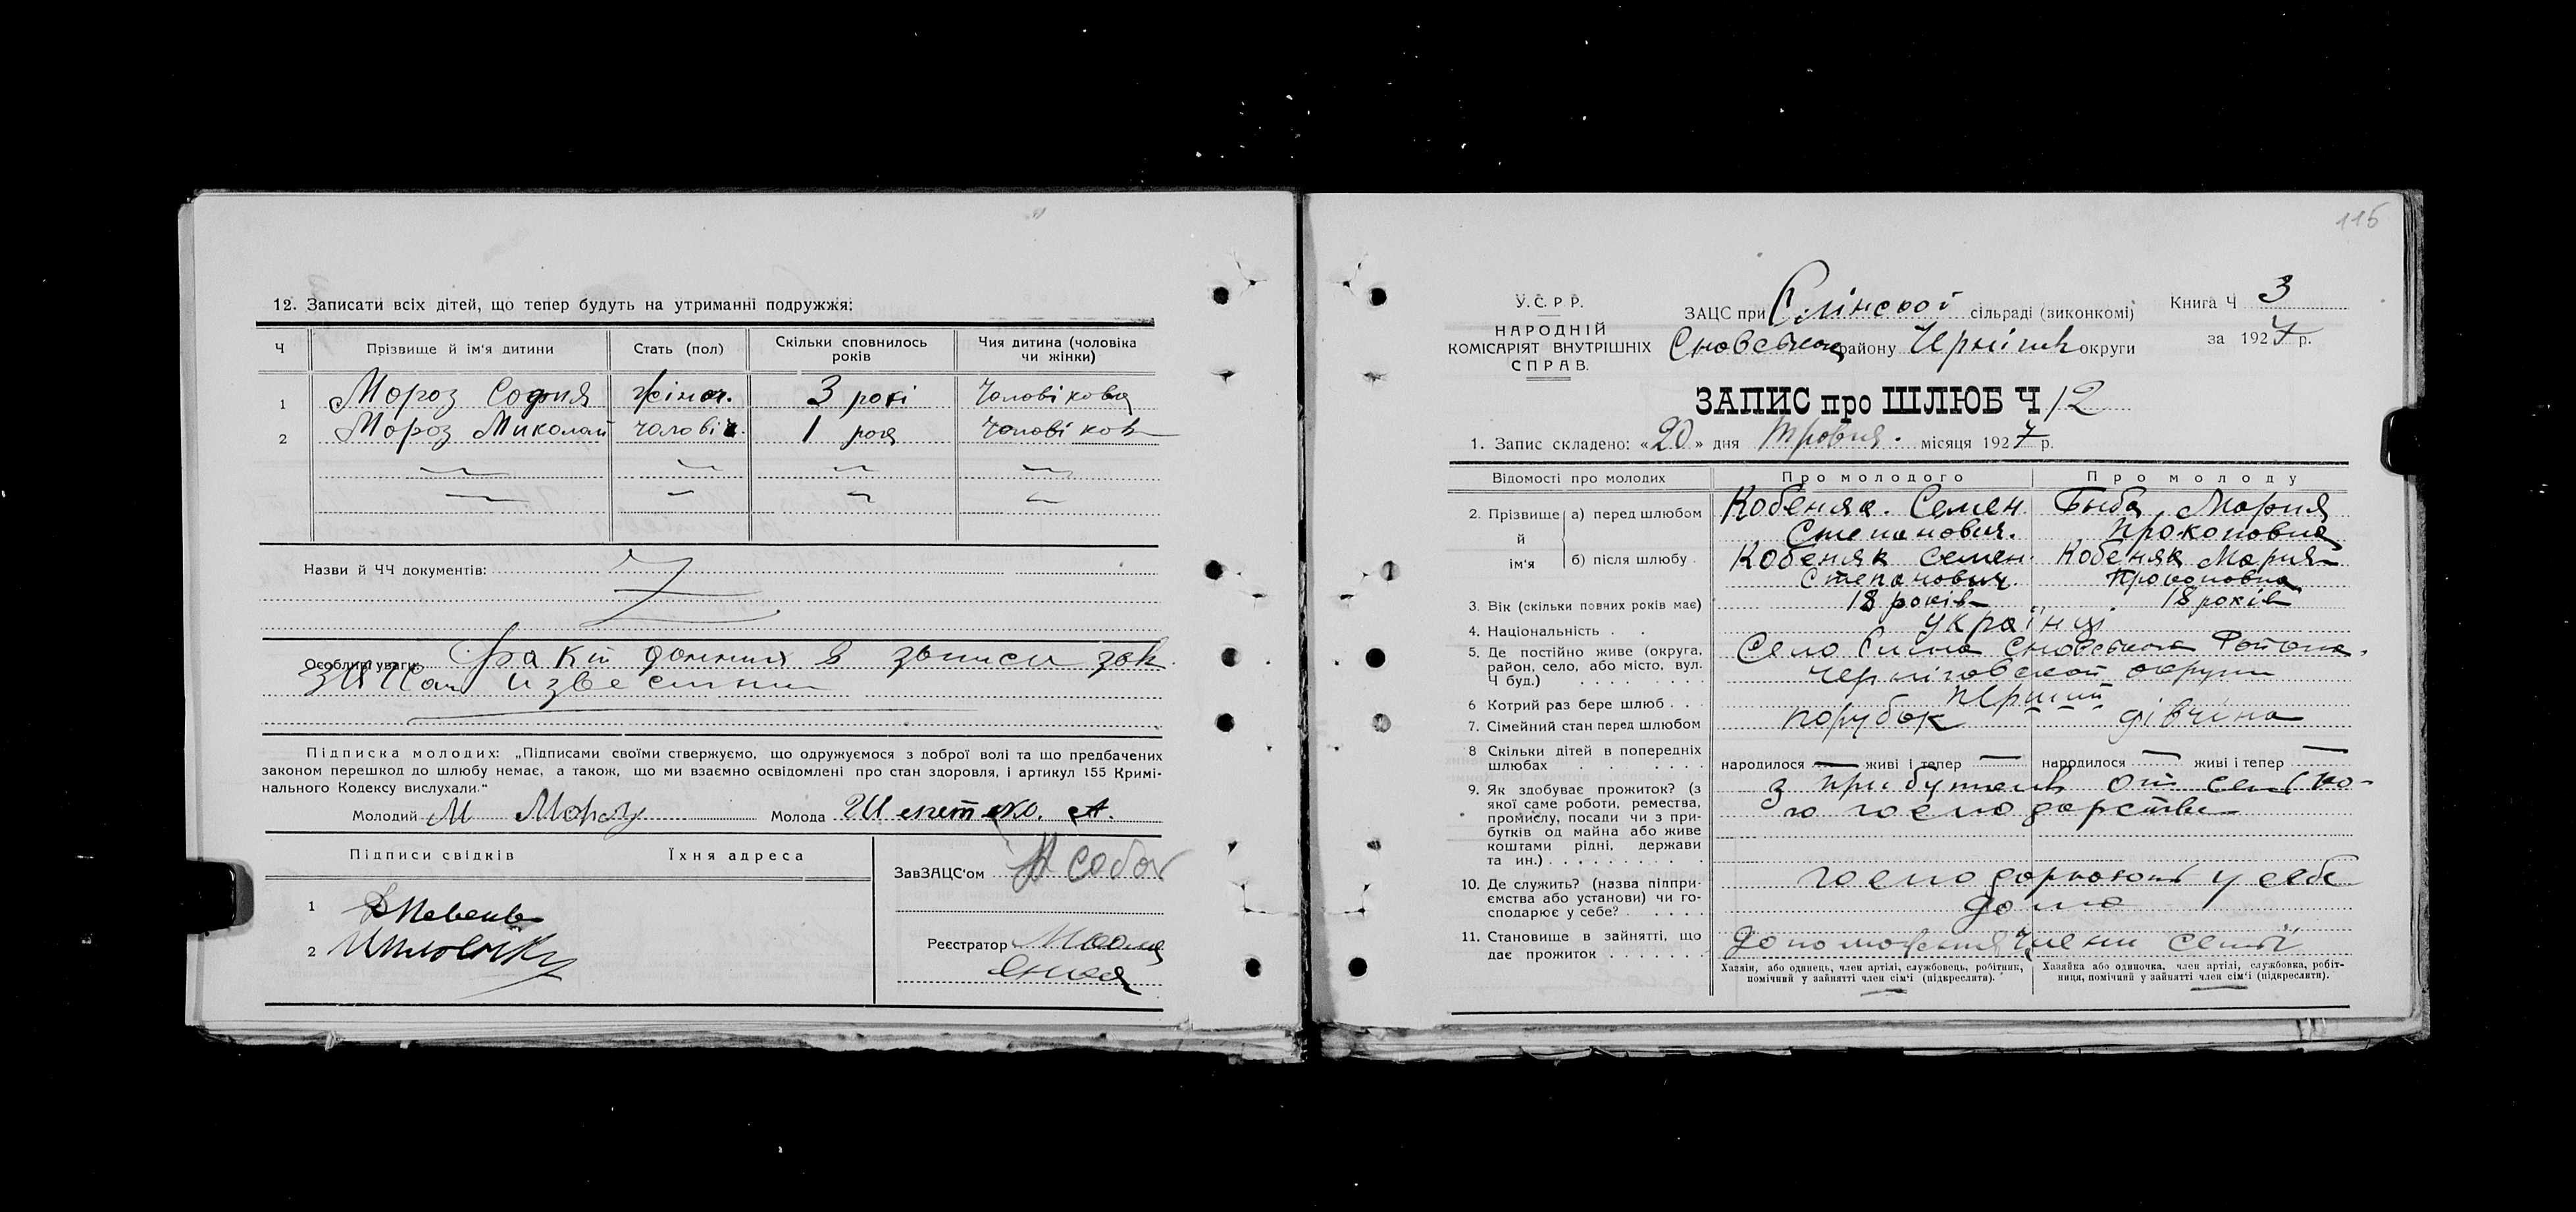 12. Записати всіх дітей, що тепер будуть на утриманні подружжя:
Ч
Прізвище й ім'я дитини
Стать (пол)
Скільки сповнилось років
Чия дитина (чоловіка чи жінки)
1 Мороз София жіноч. 3 рокі Чоловікова
2 Мороз Миколай чоловіч. 1 рок Чоловіков
Назви й ЧЧ документів:
Особливі уваги:
Підписка молодих: „Підписами своїми стверджуємо, що одружуємося з доброї волі та що предбачених
законом перешкод до шлюбу немає, а також, що ми взаємно освідомлені про стан здоровля, і артикул 155 Кримі-
нального Кодексу вислухали."
Молодий М Мороз Молода
Підписи свідків Їхня адреса
ЗавЗАЦС'ом
1
2
Реєстратор
115
У.С.Р.Р.
НАРОДНІЙ
КОМІСАРІЯТ ВНУТРІШНІХ
СПРАВ.
ЗАЦС при Слінской сільраді (виконкомі)
Сновського району Черніг округи
Книга Ч 3
за 1927 р.
ЗАПИС про ШЛЮБ Ч 12
1. Запис складено: «20» дня Травня місяця 1927 р.
Відомості про молодих
Про молодого
Про молоду
2. Прізвище й ім'я
а) перед шлюбом
Кобеняк Семен Степанович.
Быба Мария Прокоповна
б) після шлюбу
Кобеняк Семен Степанович.
Кобеняк Мария Прокоповна
3. Вік (скільки повних років має) 18 років 18 років
4. Національність . . українці
5. Де постійно живе (округа, район, село, або місто, вул. Ч буд.)
Село Сновського Району
Чернігобской округи
6 Котрий раз бере шлюб . . . перший
7. Сімейний стан перед шлюбом парубок дівчина
8 Скільки дітей в попередніх шлюбах
народилося — живі і тепер —
народилося — живі і тепер —
9. Як здобуває прожиток? (з якої саме роботи, ремества, промислу, посади чи з прибутків од майна або живе коштами рідні, держави та ин.)
з прибутків от сельско-
го господарства
10. Де служить? (назва підприємства або установи) чи господарює у себе?
господарюють у себе
дома
11. Становище в зайнятті, що дає прожиток
члени семьї
Хазяїн, або одинець, член артілі, службовець, робітник, помічний у зайнятті член сім'ї (підкреслити).
Хазяйка або одиночка, член артілі, службовка, робітниця, помічний у зайнятті член сім'ї (підкреслити).